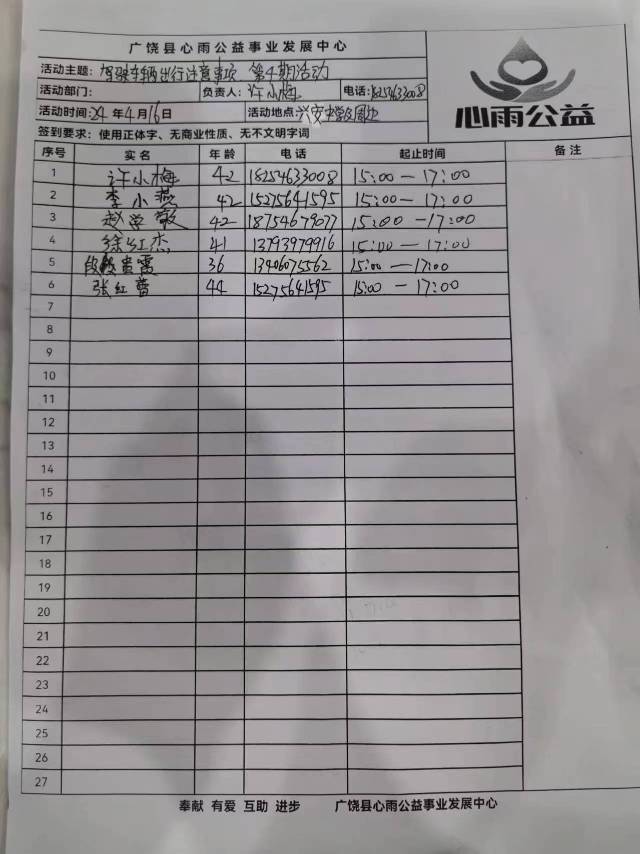 广饶县心雨公益事业发展中心
心雨公益
活动主题：驾驶车辆出行注意事项 第4期活动
活动部门： 负责人：许小梅 电话：18254633008
活动时间：24年4月16日 活动地点：兴安中学及周边
签到要求：使用正体字、无商业性质、无不文明字词
序号 实名 年龄 电话 起止时间 备注
1 许小梅 42 18254633008 15:00-17:00
2 李小燕 42 15275641595 15:00-17:00
3 赵学敏 42 18754679077 15:00-17:00
4 徐红杰 41 13793979916 15:00-17:00
5 段 贵霄 36 13406075562 15:00-17:00
6 张红蕾 44 15275641595 15:00-17:00
7
8
9
10
11
12
13
14
15
16
17
18
19
20
21
22
23
24
25
26
27
奉献 有爱 互助 进步 广饶县心雨公益事业发展中心